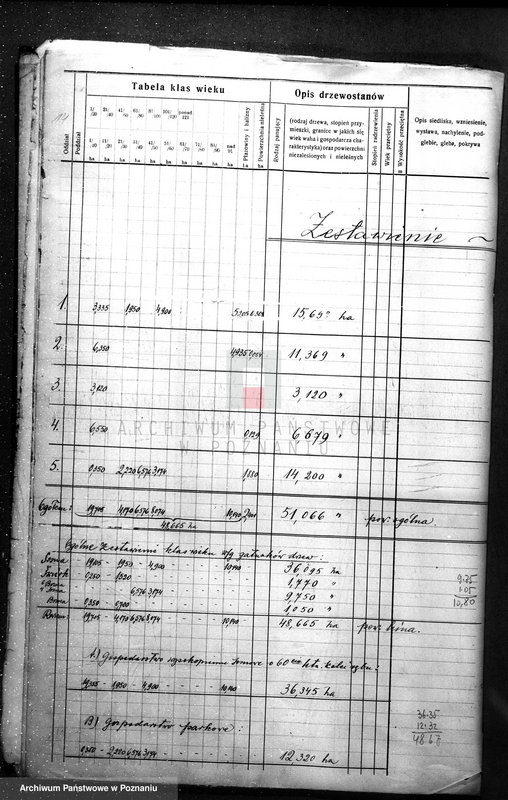 Tabela klas wieku
Opis drzewostanów
Oddział
Pododdział
1/20 21/40 41/60 61/80 81/100 101/120 ponad 121
1/10 11/20 21/30 31/40 41/50 51/60 61/70 71/80 81/90 nad 91
ha ha ha ha ha ha ha ha ha ha
Płazowiny i halizny
Powierzchnia nieleśna
Rodzaj panujący
(rodzaj drzewa, stopień przymieszki, granice w jakich się wiek waha i gospodarcza charakterystyka) oraz powierzchni niezalesionych i nieleśnych
Stopień zadrzewienia
Wiek przeciętny
Wysokość przeciętna
Opis siedliska, wzniesienie, wystawa, nachylenie, podglebie, gleba, pokrywa
Zestawienie ~
1. 3,335 1,950 4,900 15,690 ha
2. 6,350 11,369 "
3. 3,120 3,120 "
4. 6,550 0,129 6,679 "
5. 0,350 2,220 6,576 3,174 1,880 14,200 "
Ogółem: 19,705 4,170 6,576 8,074 51,066 " pow. ogólna
48,665 ha
Ogólne zestawienie klas wieku wg gatunków drzew:
Sosna 1,950 - 4,900 10,140 36,095 ha
Świerk 0,250 1,520 1,770 "
Sosna 6,576 3,174 9,750 "
0,350 0,700 1,050 "
Razem: 19,705 4,170 6,576 8,074 10,140 48,665 ha pow. leśna.
9.75
1.05
10,80
A) Gospodarstwo wysokopienne sosnowe o 60 letn. kolei rębu:
19,355 - 1,950 - 4,900 - - - - 10,140
36,345 ha
B) Gospodarstwo parkowe:
0,350 - 2,220 6,576 3,174 - - - -
12,320 ha
36.35
12.32
48.67
ARCHIWUM PAŃSTWOWE
W POZNANIU
Archiwum Państwowe w Poznaniu
szukajwarchiwach.gov.pl